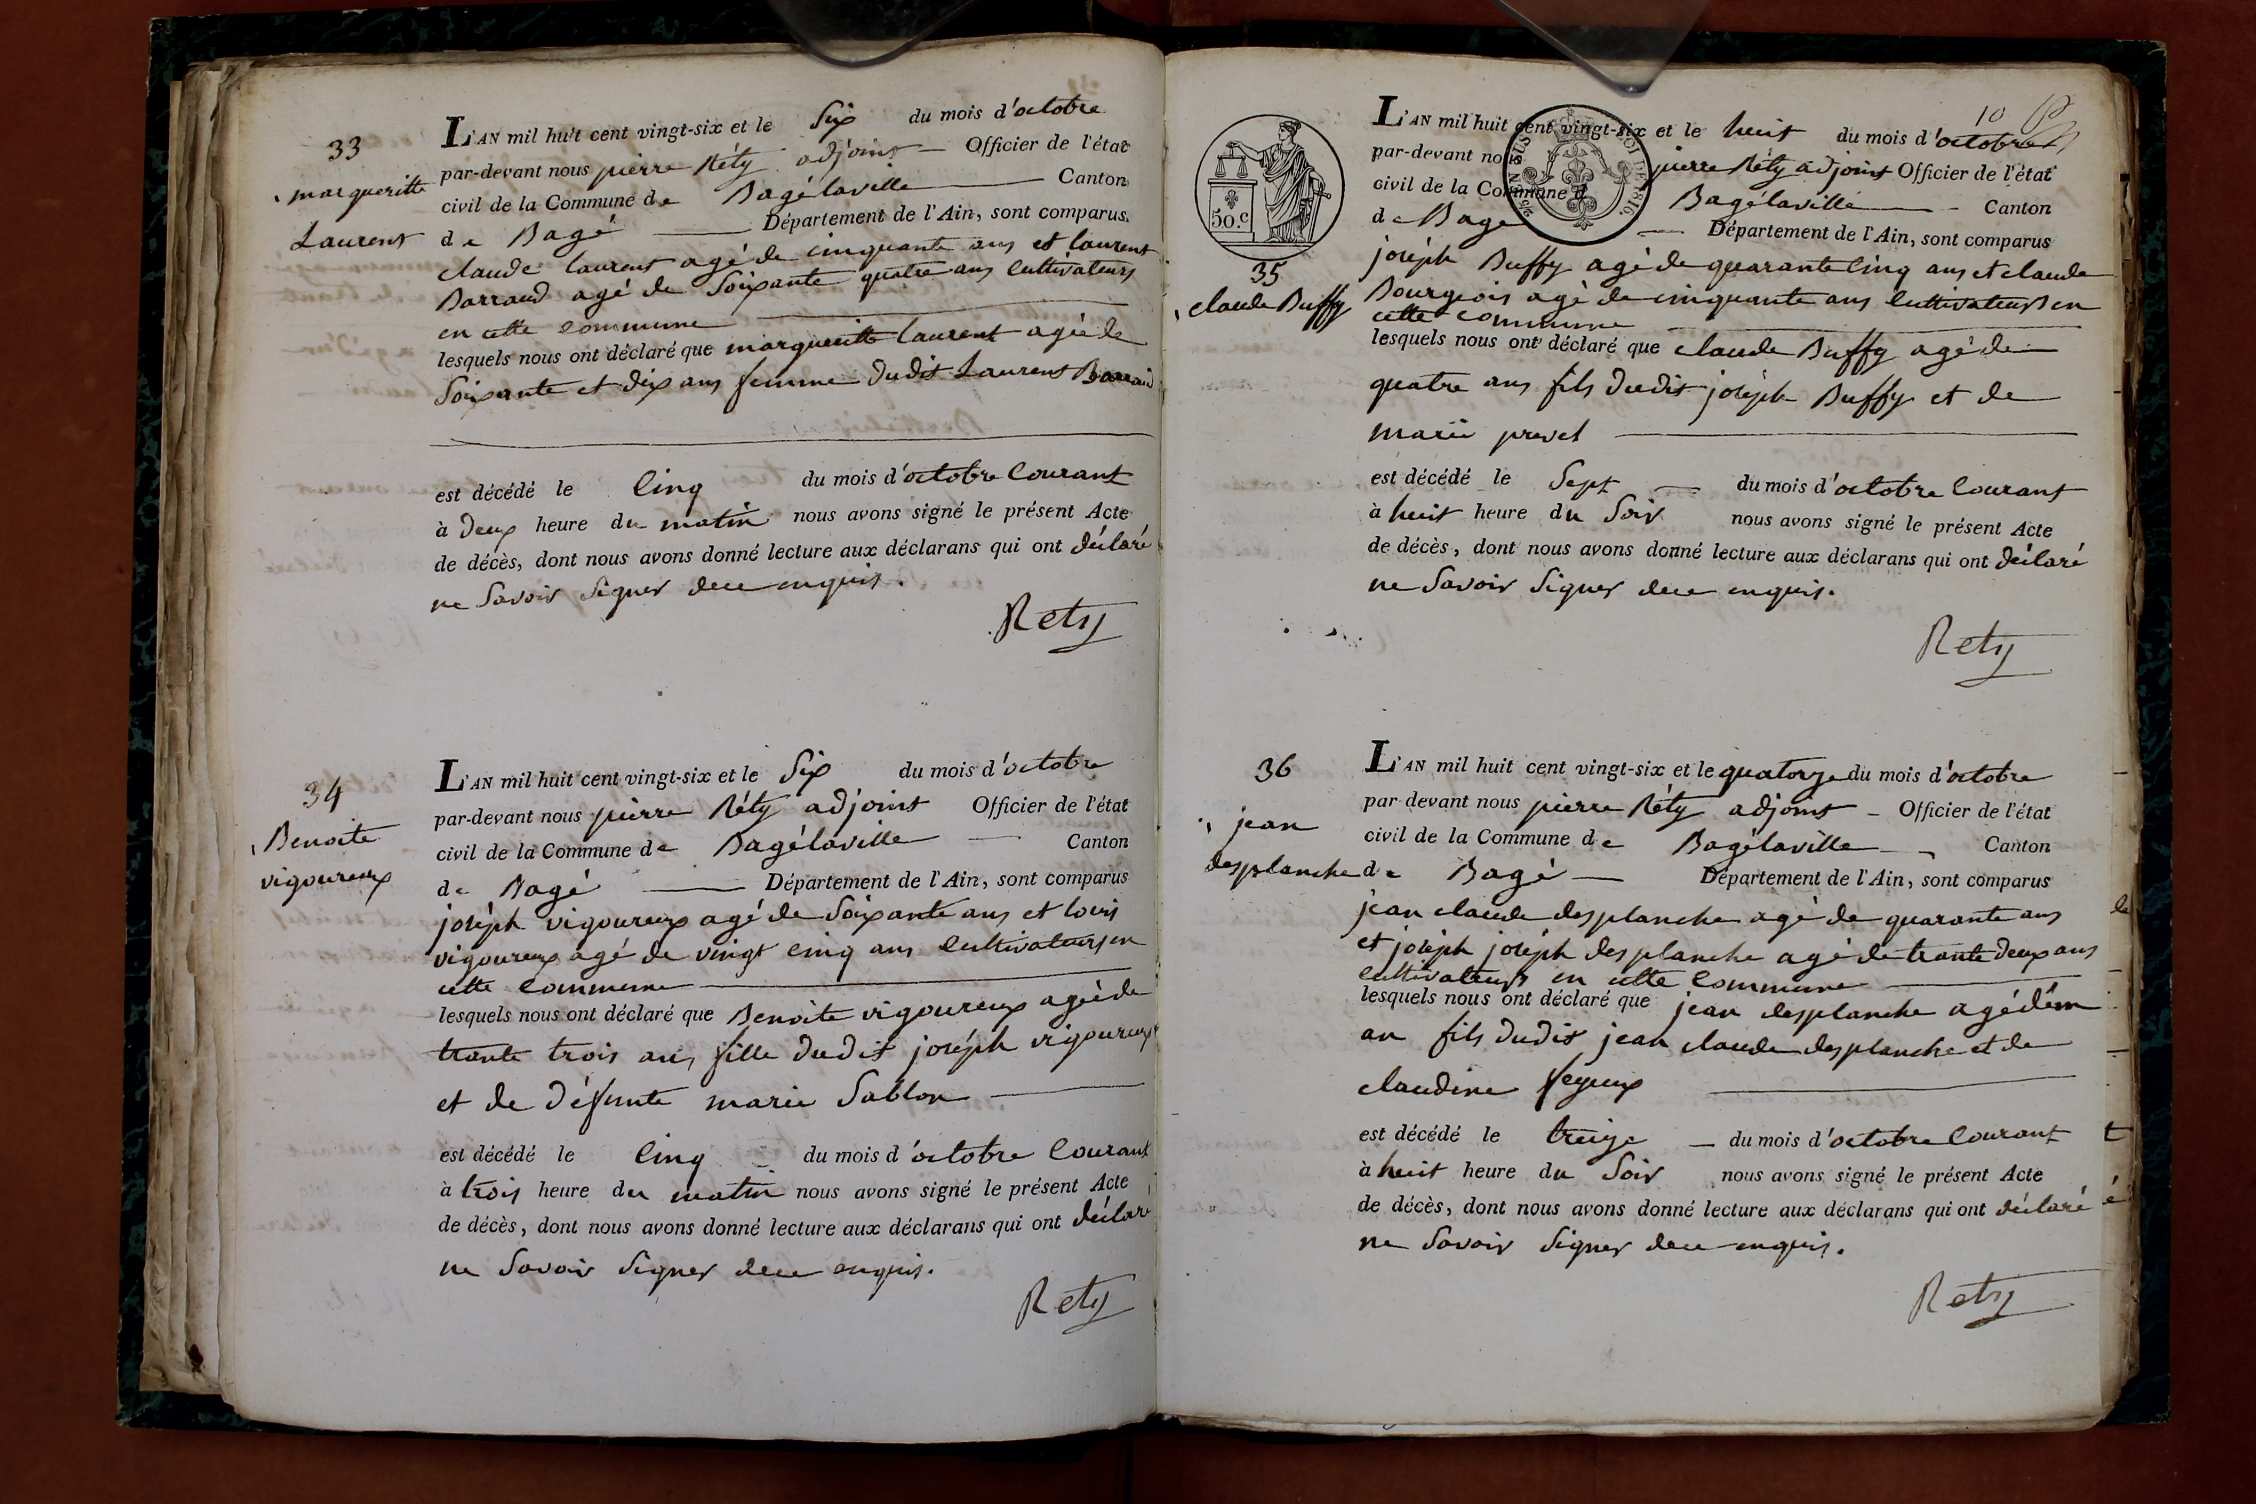 33
margueritte
Laurent
L'AN mil huit cent vingt-six et le Six du mois d'octobre
par-devant nous pierre Réty adjoint Officier de l'état
civil de la Commune de Bagélaville Canton
de Bagé Département de l'Ain, sont comparus
claude laurent agé de cinquante ans et laurent
Barraud agé de Soixante quatre ans Cultivateurs
en cette commune
lesquels nous ont déclaré que margueritte laurent agée de
Soixante et dix ans femme dudit Laurent Barraud
est décédé le Cinq du mois d'octobre Courant
à deux heure du matin nous avons signé le présent Acte
de décès, dont nous avons donné lecture aux déclarans qui ont déclaré
ne Savoir Signer de ce enquis.
Rety
34
Benoite
vigoureux
L'AN mil huit cent vingt-six et le Six du mois d'octobre
par-devant nous pierre Réty adjoint Officier de l'état
civil de la Commune de Bagélaville Canton
de Bagé Département de l'Ain, sont comparus
joséph vigoureux agé de Soixante ans et louis
vigoureux agé de vingt cinq ans Cultivateurs en
cette Commune
lesquels nous ont déclaré que Benoite vigoureux agée de
trante trois ans fille dudit joséph vigoureux
et de défunte marie Sablon
est décédé le Cinq du mois d'octobre Courant
à trois heure du matin nous avons signé le présent Acte
de décès, dont nous avons donné lecture aux déclarans qui ont déclaré
ne Savoir Signer de ce enquis.
Rety
10
50.c
35
claude Buffy
L'AN mil huit cent vingt-six et le huit du mois d'octobre
par-devant nous pierre Réty adjoint Officier de l'état
civil de la Commune de Bagélaville Canton
de Bagé Département de l'Ain, sont comparus
joséph Buffy agé de quarante Cinq ans et claude
Bourgeois agé de cinquante ans Cultivateurs en
cette commune
lesquels nous ont déclaré que claude Buffy agé de
quatre ans fils dudit joséph Buffy et de
marie prevel
est décédé le Sept du mois d'octobre Courant
à huit heure du Soir nous avons signé le présent Acte
de décès, dont nous avons donné lecture aux déclarans qui ont déclaré
ne Savoir Signer de ce enquis.
Rety
36
jean
desplanche
L'AN mil huit cent vingt-six et le quatorze du mois d'octobre
par devant nous pierre Réty adjoint Officier de l'état
civil de la Commune de Bagélaville Canton
de Bagé Département de l'Ain, sont comparus
jean claude desplanche agé de quarante ans
et joséph joséph desplanche agé de trante deux ans
cultivateurs en cette Commune
lesquels nous ont déclaré que jean desplanche agé d'un
an fils dudit jean claude desplanche et de
claudine feyeux
est décédé le treize du mois d'octobre Courant
à huit heure du Soir nous avons signé le présent Acte
de décès, dont nous avons donné lecture aux déclarans qui ont déclaré
ne Savoir Signer de ce enquis.
Rety